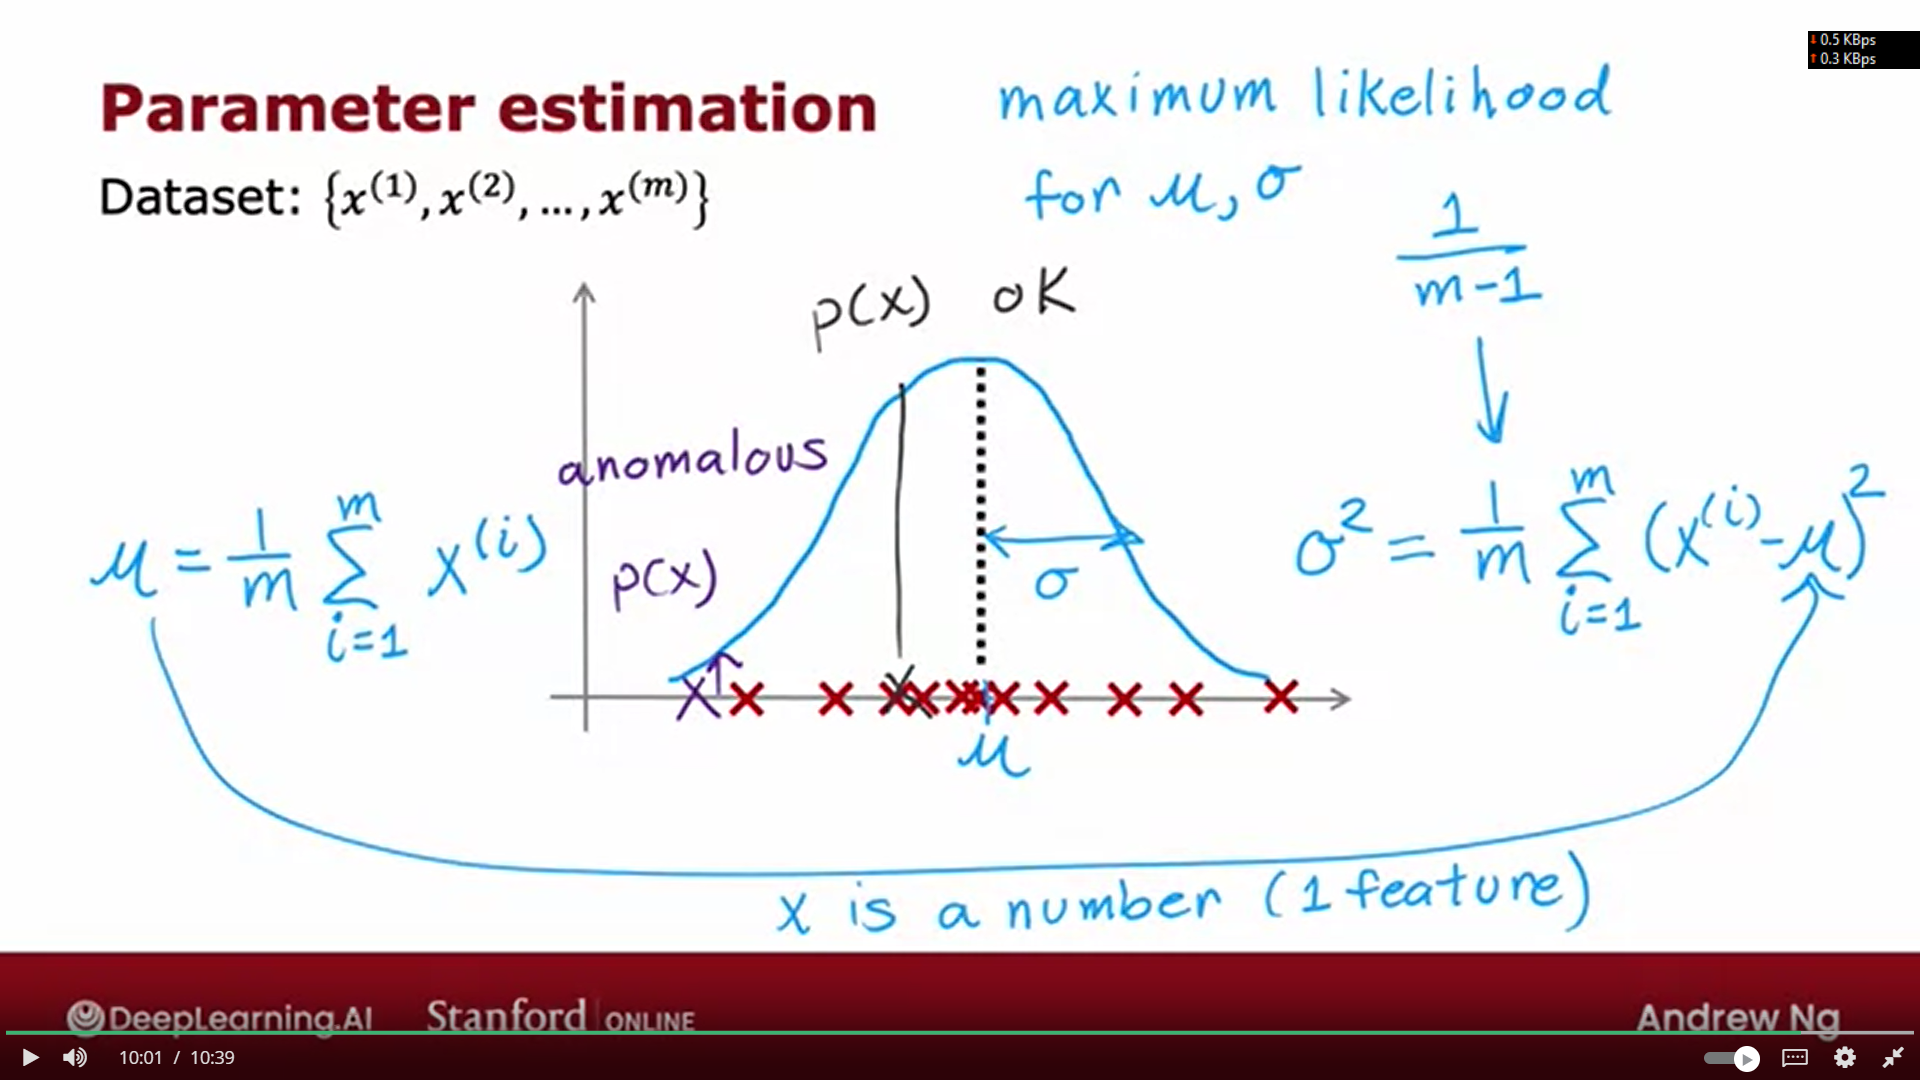 ↓ 0.5 KBps
↑ 0.3 KBps
Parameter estimation
maximum likelihood
for μ, σ
Dataset: {x⁽¹⁾, x⁽²⁾, ..., x⁽ᵐ⁾}
1/(m-1)
p(x) OK
anomalous
p(x)
μ = 1/m ∑_{i=1}^{m} x^{(i)}
σ
σ² = 1/m ∑_{i=1}^{m} (x^{(i)} - μ)²
μ
x is a number (1 feature)
DeepLearning.AI Stanford | ONLINE Andrew Ng
10:01 / 10:39